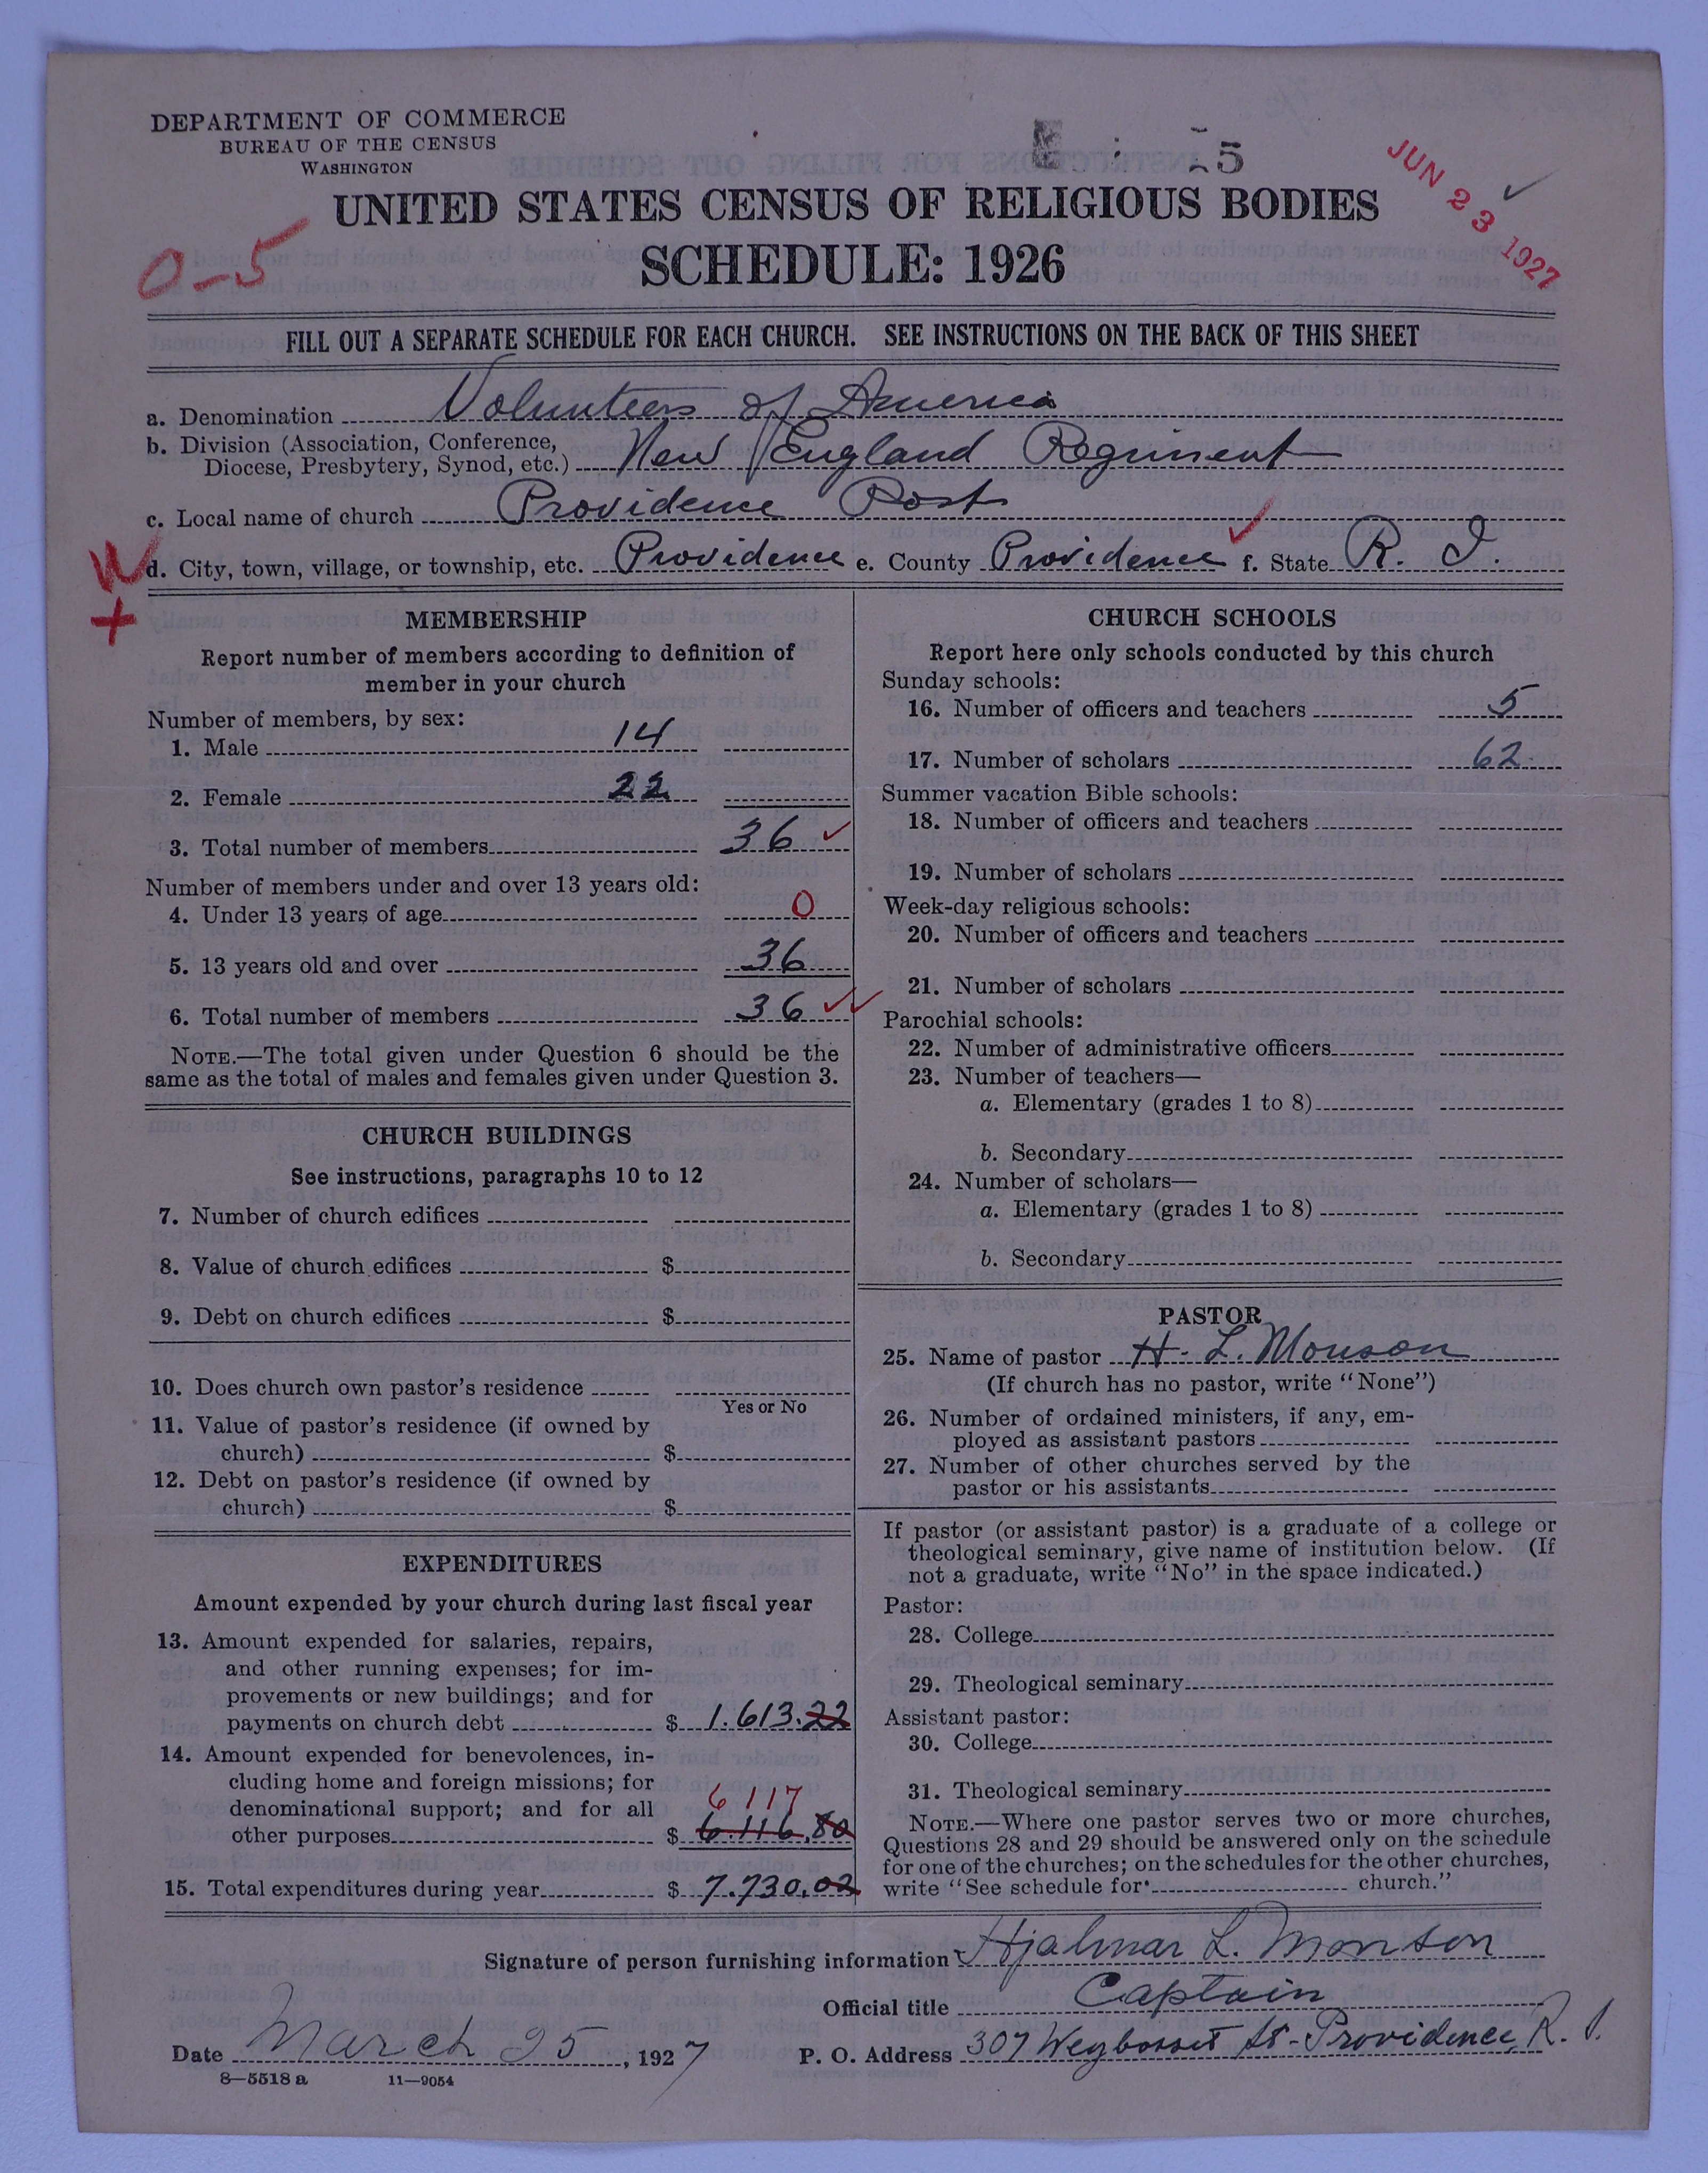 DEPARTMENT OF COMMERCE
BUREAU OF THE CENSUS
WASHINGTON
5
JUN 23 1927
UNITED STATES CENSUS OF RELIGIOUS BODIES
0-5
SCHEDULE: 1926
FILL OUT A SEPARATE SCHEDULE FOR EACH CHURCH. SEE INSTRUCTIONS ON THE BACK OF THIS SHEET
a. Denomination Volunteers of America
b. Division (Association, Conference,
Diocese, Presbytery, Synod, etc.) New England Regiment
c. Local name of church Providence Post
W d. City, town, village, or township, etc. Providence e. County Providence f. State R. I.
+
MEMBERSHIP
Report number of members according to definition of
member in your church
Number of members, by sex:
1. Male 14
2. Female 22
3. Total number of members 36
Number of members under and over 13 years old:
4. Under 13 years of age 0
5. 13 years old and over 36
6. Total number of members 36
NOTE.—The total given under Question 6 should be the
same as the total of males and females given under Question 3.
CHURCH BUILDINGS
See instructions, paragraphs 10 to 12
7. Number of church edifices
8. Value of church edifices $
9. Debt on church edifices $
10. Does church own pastor's residence
Yes or No
11. Value of pastor's residence (if owned by
church) $
12. Debt on pastor's residence (if owned by
church) $
EXPENDITURES
Amount expended by your church during last fiscal year
13. Amount expended for salaries, repairs,
and other running expenses; for im-
provements or new buildings; and for
payments on church debt $ 1.613.22
14. Amount expended for benevolences, in-
cluding home and foreign missions; for
denominational support; and for all
6 117
other purposes $ 6.116.80
15. Total expenditures during year $ 7.730.02
CHURCH SCHOOLS
Report here only schools conducted by this church
Sunday schools:
16. Number of officers and teachers 5
17. Number of scholars 62
Summer vacation Bible schools:
18. Number of officers and teachers
19. Number of scholars
Week-day religious schools:
20. Number of officers and teachers
21. Number of scholars
Parochial schools:
22. Number of administrative officers
23. Number of teachers—
a. Elementary (grades 1 to 8)
b. Secondary
24. Number of scholars—
a. Elementary (grades 1 to 8)
b. Secondary
PASTOR
25. Name of pastor H. L. Monson
(If church has no pastor, write "None")
26. Number of ordained ministers, if any, em-
ployed as assistant pastors
27. Number of other churches served by the
pastor or his assistants
If pastor (or assistant pastor) is a graduate of a college or
theological seminary, give name of institution below. (If
not a graduate, write "No" in the space indicated.)
Pastor:
28. College
29. Theological seminary
Assistant pastor:
30. College
31. Theological seminary
NOTE.—Where one pastor serves two or more churches,
Questions 28 and 29 should be answered only on the schedule
for one of the churches; on the schedules for the other churches,
write "See schedule for church."
Signature of person furnishing information Hjalmar L. Monson
Official title Captain
Date March 25, 1927 P. O. Address 307 Weybosset St-Providence, R. I.
8—5518 a 11—9054